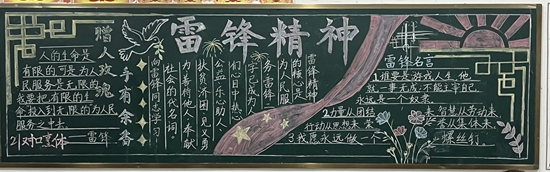 雷锋精神
赠人玫瑰
手有余香
人的生命是
有限的可是为人
民服务是无限的
我要把有限的生
命投入到无限的为人民
服务之中去
雷锋
21对口烹体
向雷锋同志学习
雷锋精神
的核心是
为人民服
务雷锋
字已成为
们心目中热心
公益乐心助人
扶贫济困见义勇
为善待他人奉献
社会的代名词
雷锋名言
1谁要是游戏人生他
就一事无成不能主宰自己
永远是一个奴隶
2力量从团结来智慧从劳动来
行动从思想来荣誉从集体来
3我愿永远做一个螺丝钉